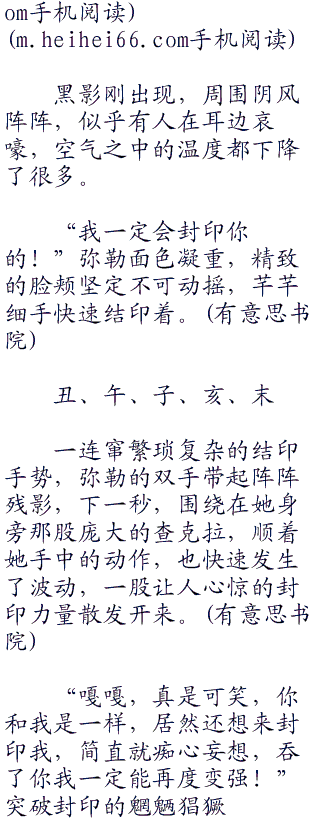 om手机阅读)
(m.heihei66.com手机阅读)
黑影刚出现，周围阴风
阵阵，似乎有人在耳边哀
嚎，空气之中的温度都下降
了很多。
“我一定会封印你
的！”弥勒面色凝重，精致
的脸颊坚定不可动摇，芊芊
细手快速结印着。(有意思书
院)
丑、午、子、亥、末
一连窜繁琐复杂的结印
手势，弥勒的双手带起阵阵
残影，下一秒，围绕在她身
旁那股庞大的查克拉，顺着
她手中的动作，也快速发生
了波动，一股让人心惊的封
印力量散发开来。(有意思书
院)
“嘎嘎，真是可笑，你
和我是一样，居然还想来封
印我，简直就痴心妄想，吞
了你我一定能再度变强！”
突破封印的魍魉猖獗